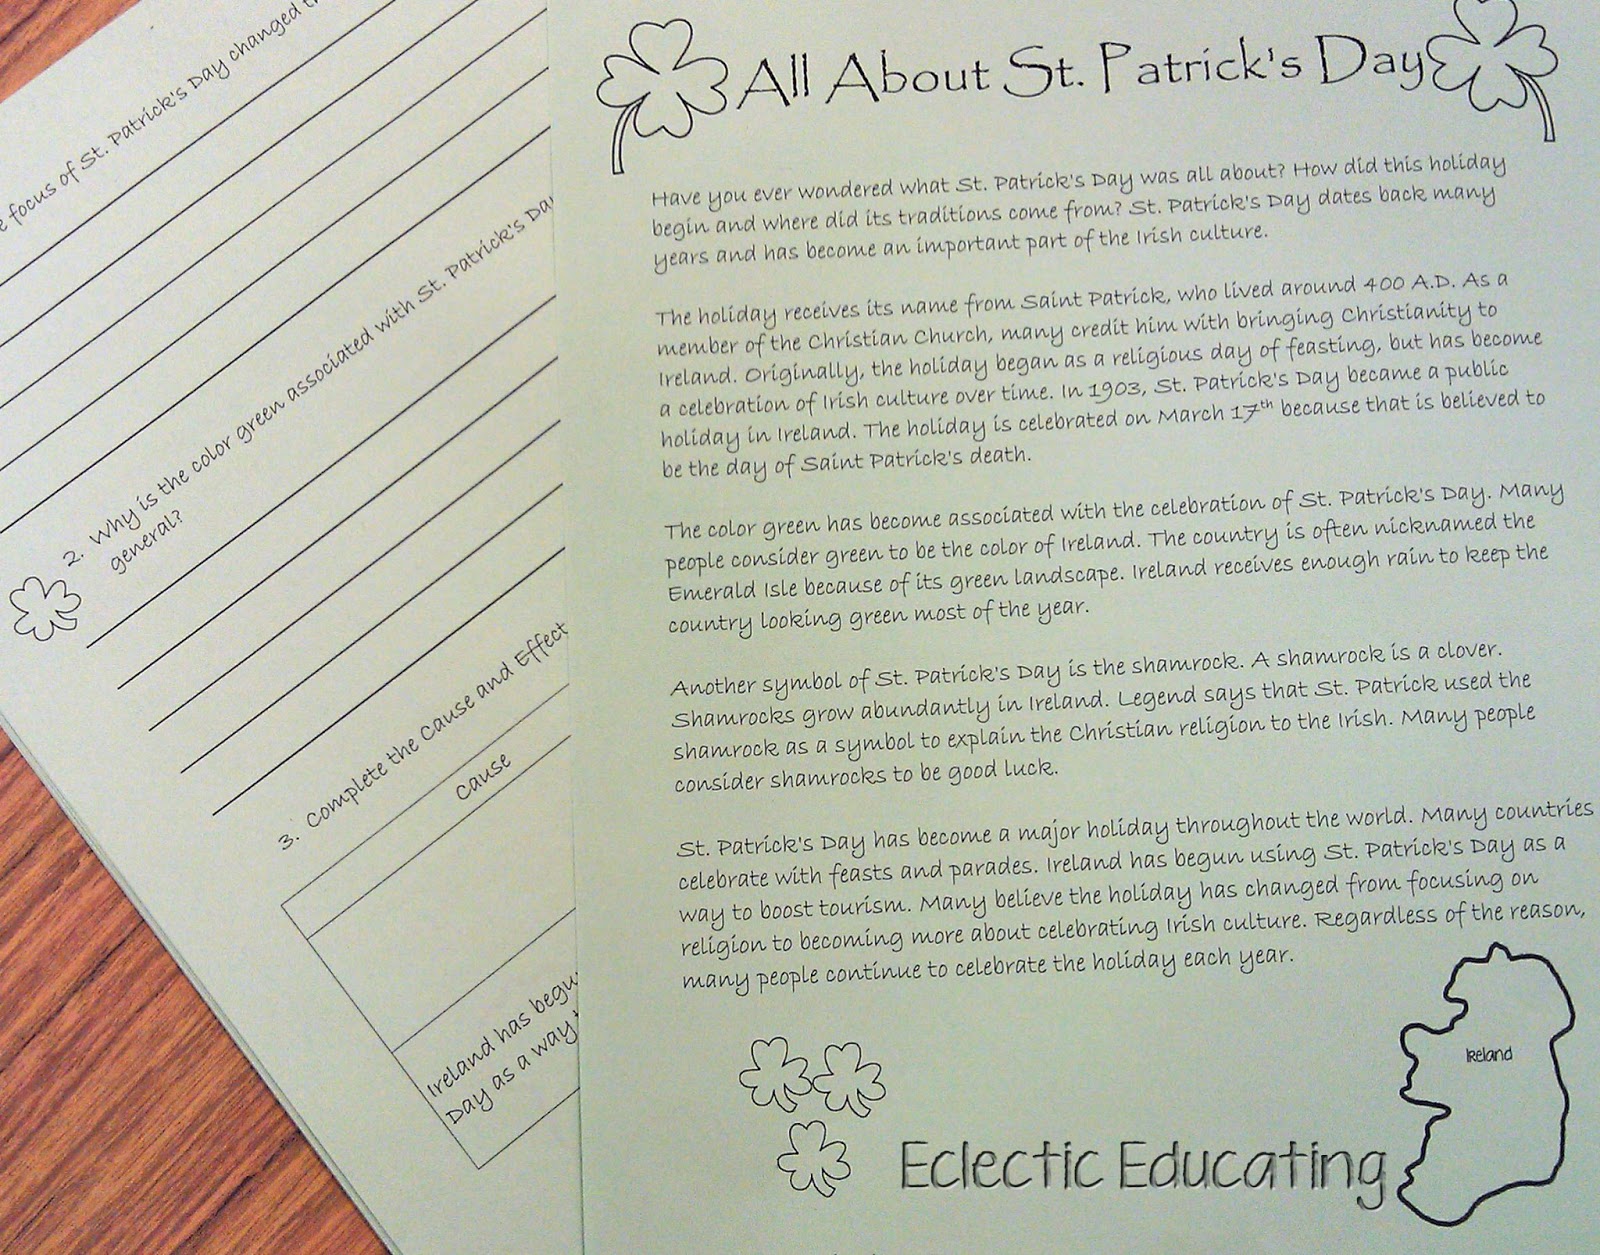 e focus of St. Patrick's Day changed
2. Why is the color green associated with St. Patrick's Day
general?
3. Complete the Cause and Effect
Cause
Ireland has begu
Day as a way
All About St. Patrick's Day
Have you ever wondered what St. Patrick's Day was all about? How did this holiday
begin and where did its traditions come from? St. Patrick's Day dates back many
years and has become an important part of the Irish culture.
The holiday receives its name from Saint Patrick, who lived around 400 A.D. As a
member of the Christian Church, many credit him with bringing Christianity to
Ireland. Originally, the holiday began as a religious day of feasting, but has become
a celebration of Irish culture over time. In 1903, St. Patrick's Day became a public
holiday in Ireland. The holiday is celebrated on March 17th because that is believed to
be the day of Saint Patrick's death.
The color green has become associated with the celebration of St. Patrick's Day. Many
people consider green to be the color of Ireland. The country is often nicknamed the
Emerald Isle because of its green landscape. Ireland receives enough rain to keep the
country looking green most of the year.
Another symbol of St. Patrick's Day is the shamrock. A shamrock is a clover.
Shamrocks grow abundantly in Ireland. Legend says that St. Patrick used the
shamrock as a symbol to explain the Christian religion to the Irish. Many people
consider shamrocks to be good luck.
St. Patrick's Day has become a major holiday throughout the world. Many countries
celebrate with feasts and parades. Ireland has begun using St. Patrick's Day as a
way to boost tourism. Many believe the holiday has changed from focusing on
religion to becoming more about celebrating Irish culture. Regardless of the reason,
many people continue to celebrate the holiday each year.
Ireland
Eclectic Educating